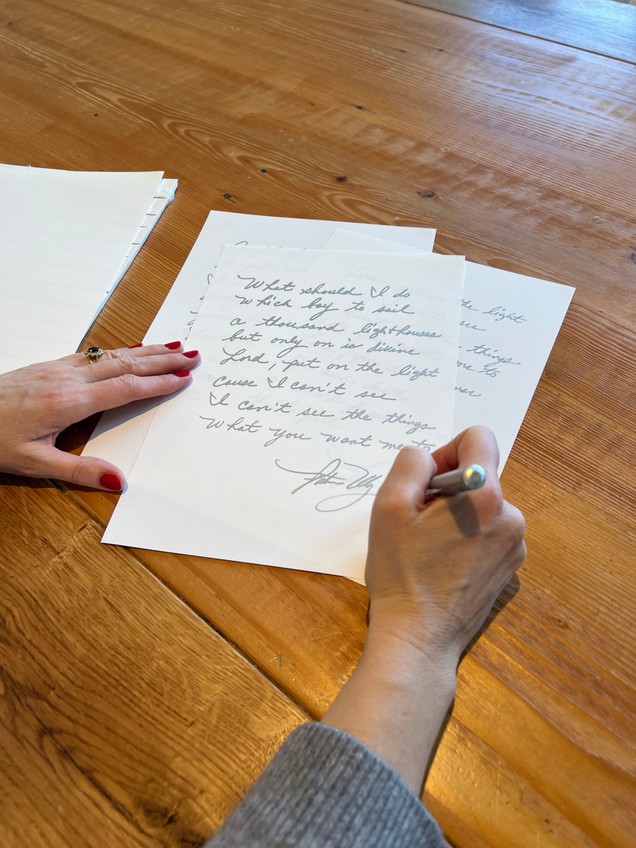 What should I do
which bay to sail
a thousand lighthouses
but only on is divine
Lord, put on the light
cause I can't see
I can't see the things
What you want me to
the light
see
things
me to